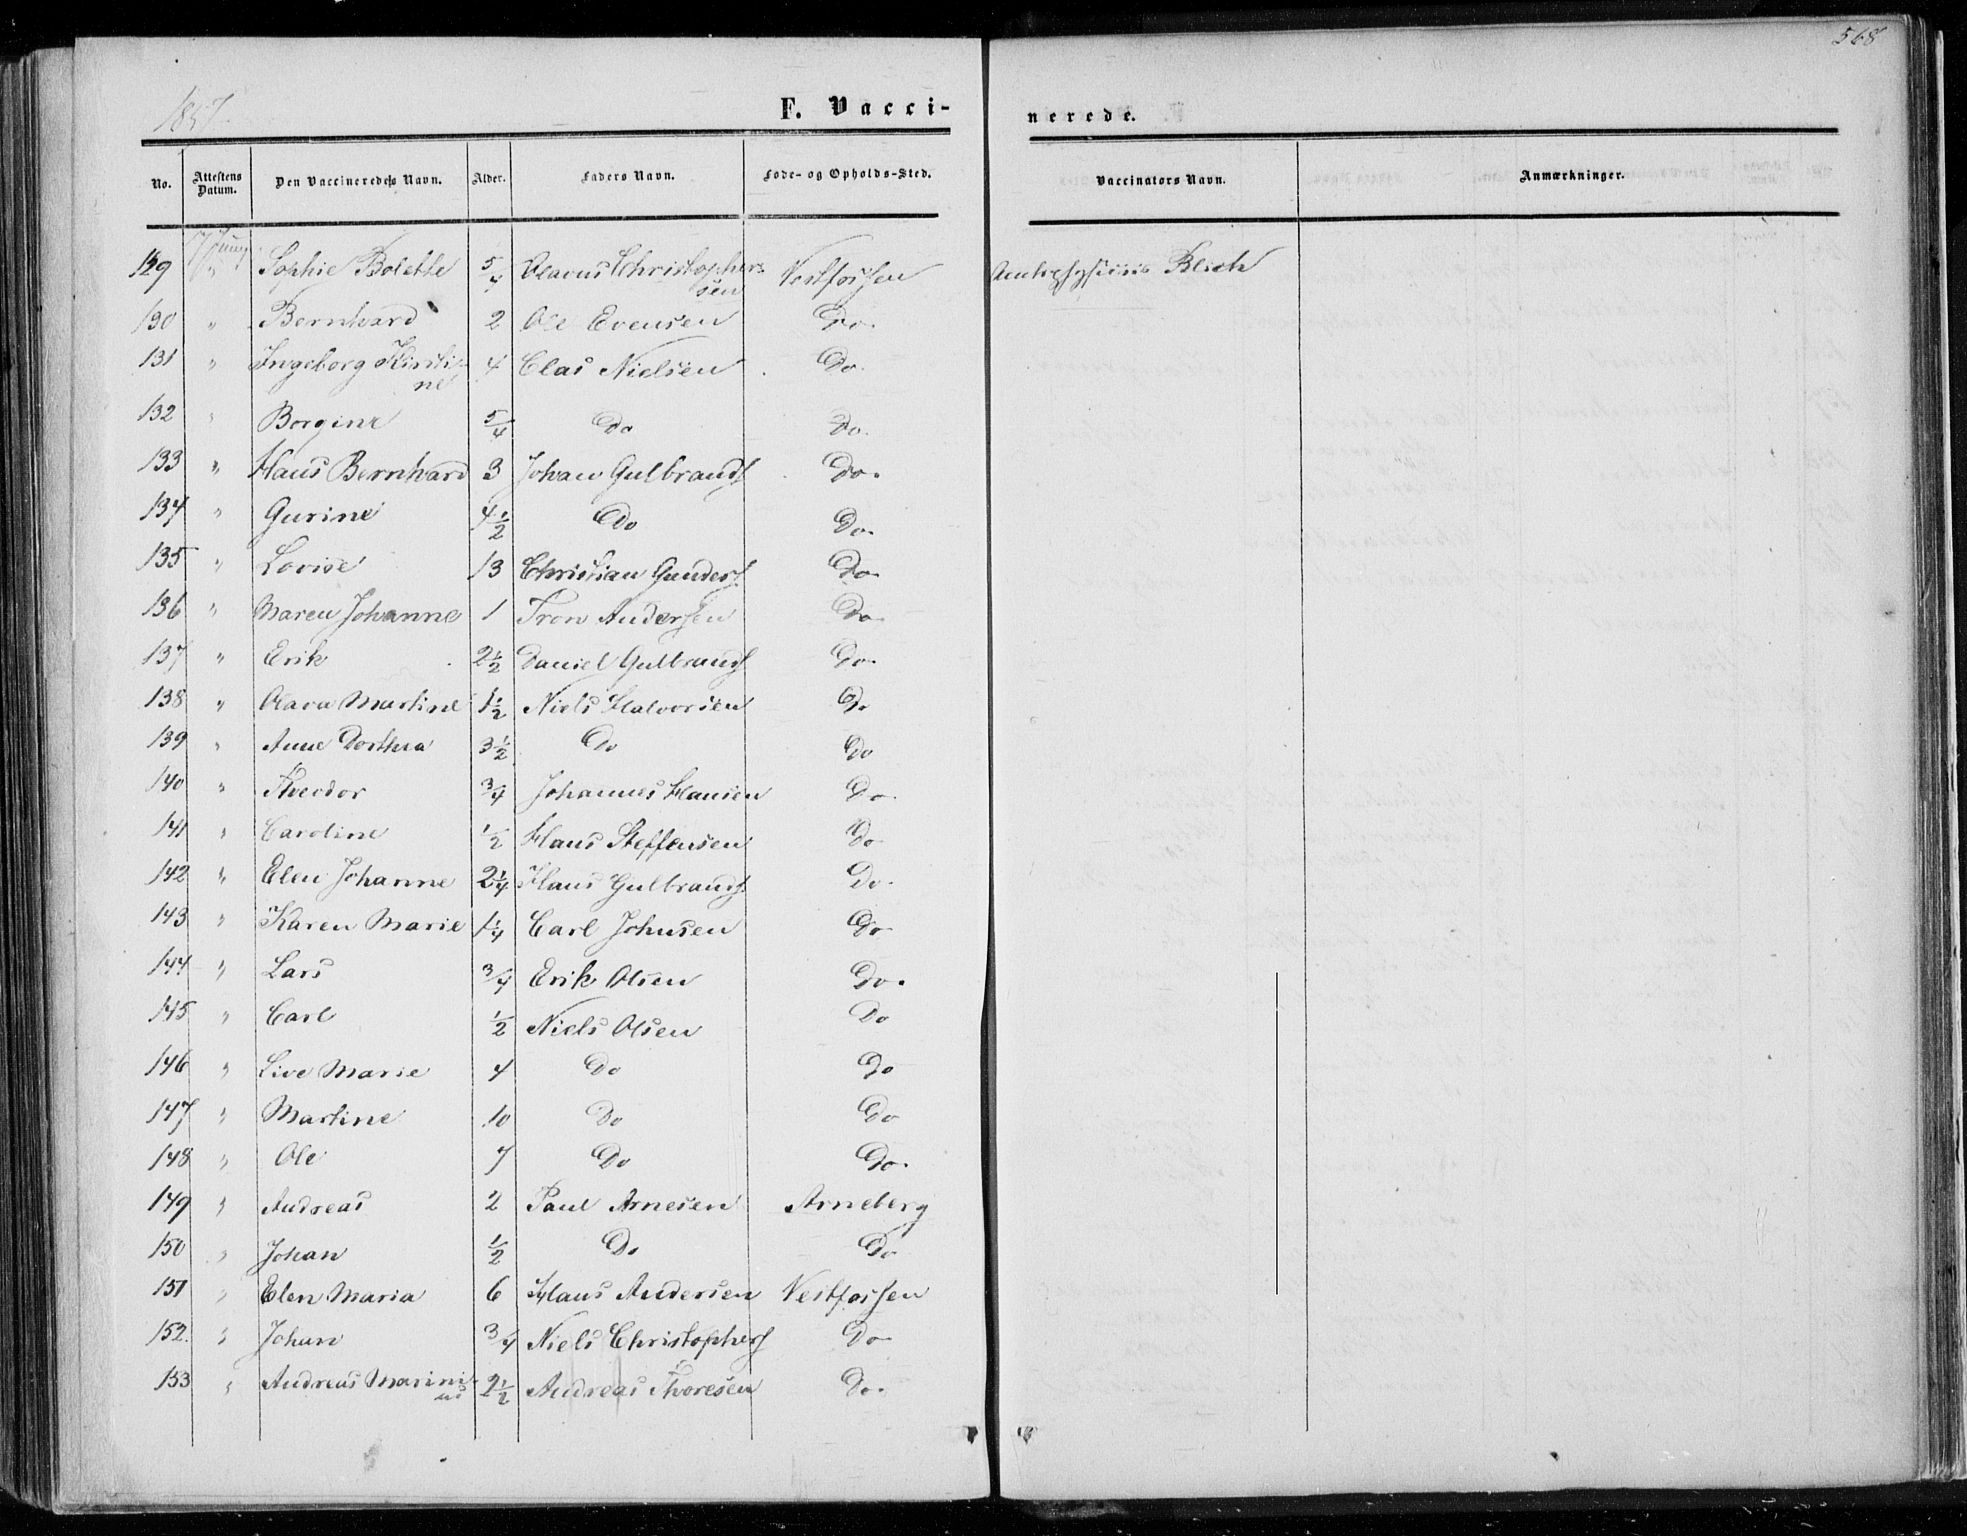 568
1857
F. Vacci-
nerede.
No. Attestens Datum. Den Vaccineredes Navn. Alder. Faders Navn. Føde- og Opholds-Sted. Vaccinators Navn. Anmærkninger.
129 17 Juny Sophie Bolette 5/4 Olavus Christopher- Vestfossen Blich
sen
130 " Bernhard 2 Ole Evensen Do.
131 " Ingeborg Kirsti- 4 Clas Nielsen Do.
ne
132 " Borgine 5/4 Do Do.
133 " Hans Bernhard 3 Johan Gulbrands Do.
134 " Gurine 4 1/2 Do Do.
135 " Lovise 13 Christian Gunders. Do
136 " Maren Johanne 1 Tron Andersen Do.
137 " Erik 2 1/2 Daniel Gulbrands Do.
138 " Olava Martine 1 1/2 Niels Halvorsen Do
139 " Anne Dorthea 3 1/2 Do Do
140 " Theodor 3/4 Johannes Hansen Do.
141 " Caroline 1/2 Hans Steffensen Do
142 " Elen Johanne 2 1/4 Hans Gulbrands. Do.
143 " Karen Marie 1 1/4 Carl Johnsen Do
144 " Lars 3/4 Erik Olsen Do.
145 " Carl 1/2 Niels Olsen Do
146 " Live Marie 4 Do Do
147 " Martine 10 Do Do
148 " Ole 7 Do Do.
149 " Andreas 2 Paul Arnesen Arneberg
150 " Johan 1/2 Do Do
151 " Elen Maria 6 Hans Andersen Vestfossen
152. " Johan 3/4 Niels Christophers Do
153 " Andreas Marini- 2 1/2 Andreas Thoresen Do.
us